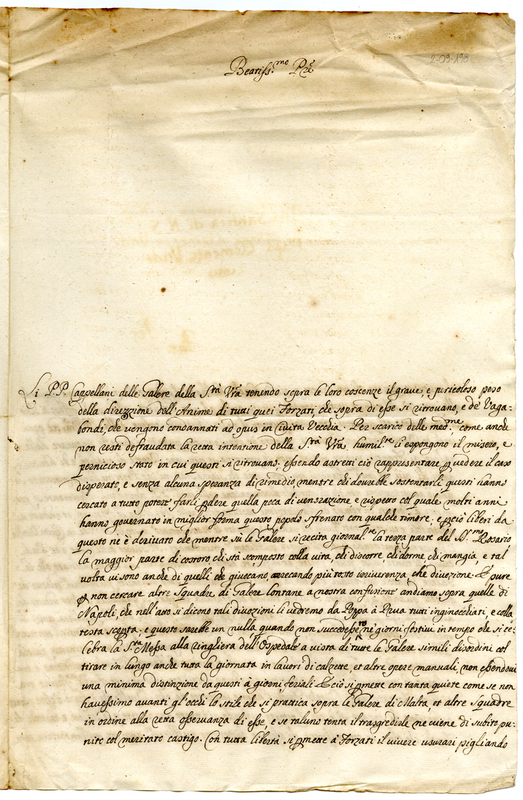 2-09-130
Beatiss.mo P.re
Li P.P. Cappellani delle Galere della S.tà V.ra tenendo sopra le loro coscenze il grave, e pericoloso peso
della direzzione dell'Anime di tutti quei Forzati che sopra di esse si ritrovano, e de Vaga-
bondi, che vengono condannati ad opus in Civita Vecchia. Per scarico delle med.me come anche
non resti defraudata la retta intentione della S.tà V.ra humil.te li espongono il misero, e
pernicioso stato in cui questi si ritrovano, essendo astretti ciò rappresentare p vedere il caso
disperato, e senza alcuna speranza di rimedio mentre chi dovrebbe sostentarli, questi hanno
cercato a tutto potere farli perdere quella poca di venerazione e rispetto col quale molti anni
hanno governato in miglior forma questo popolo sfrenato con qualche timore, e perciò liberi da
questo ne è derivato che mentre sù le Galere si recita giornal.te la terza parte del SS.mo Rosario
la maggior parte di costoro chi stà scomposto colla vita, chi discorre, chi dorme, chi mangia, e tal
volta vi sono anche di quelli che giuocano arrecando più tosto irriverenza, che divozione. E pure
p non cercare altre Squadre di Galere lontane a nostra confusione andiamo sopra quelle di
Napoli, che nell'atto si dicono tali divozioni li vedremo da Poppa à Prua tutti inginocchiati, e colla
testa scoperta, e questo sarebbe un nulla quando non succedessero ne giorni festivi in tempo che si ce-
lebra la S.ta Messa alla ringhiera dell'Ospedale a vista di tutte le Galere simili disordini col
tirare in lungo anche tutta la giornata in lavori di calzette, et altre opere manuali, non essendovi
una minima distinzione da questi à giorni feriali. E ciò si permette con tanta quiete come se non
havessimo avanti gl'occhi lo stile che si pratica sopra le Galere di Malta, et altre Squadre
in ordine alla retta osservanza di esse, e se taluno tenta il trasgredirle ne viene di subito pu-
nito col meritato castigo. Con tutta libertà si permette à Forzati il vivere usurari pigliando